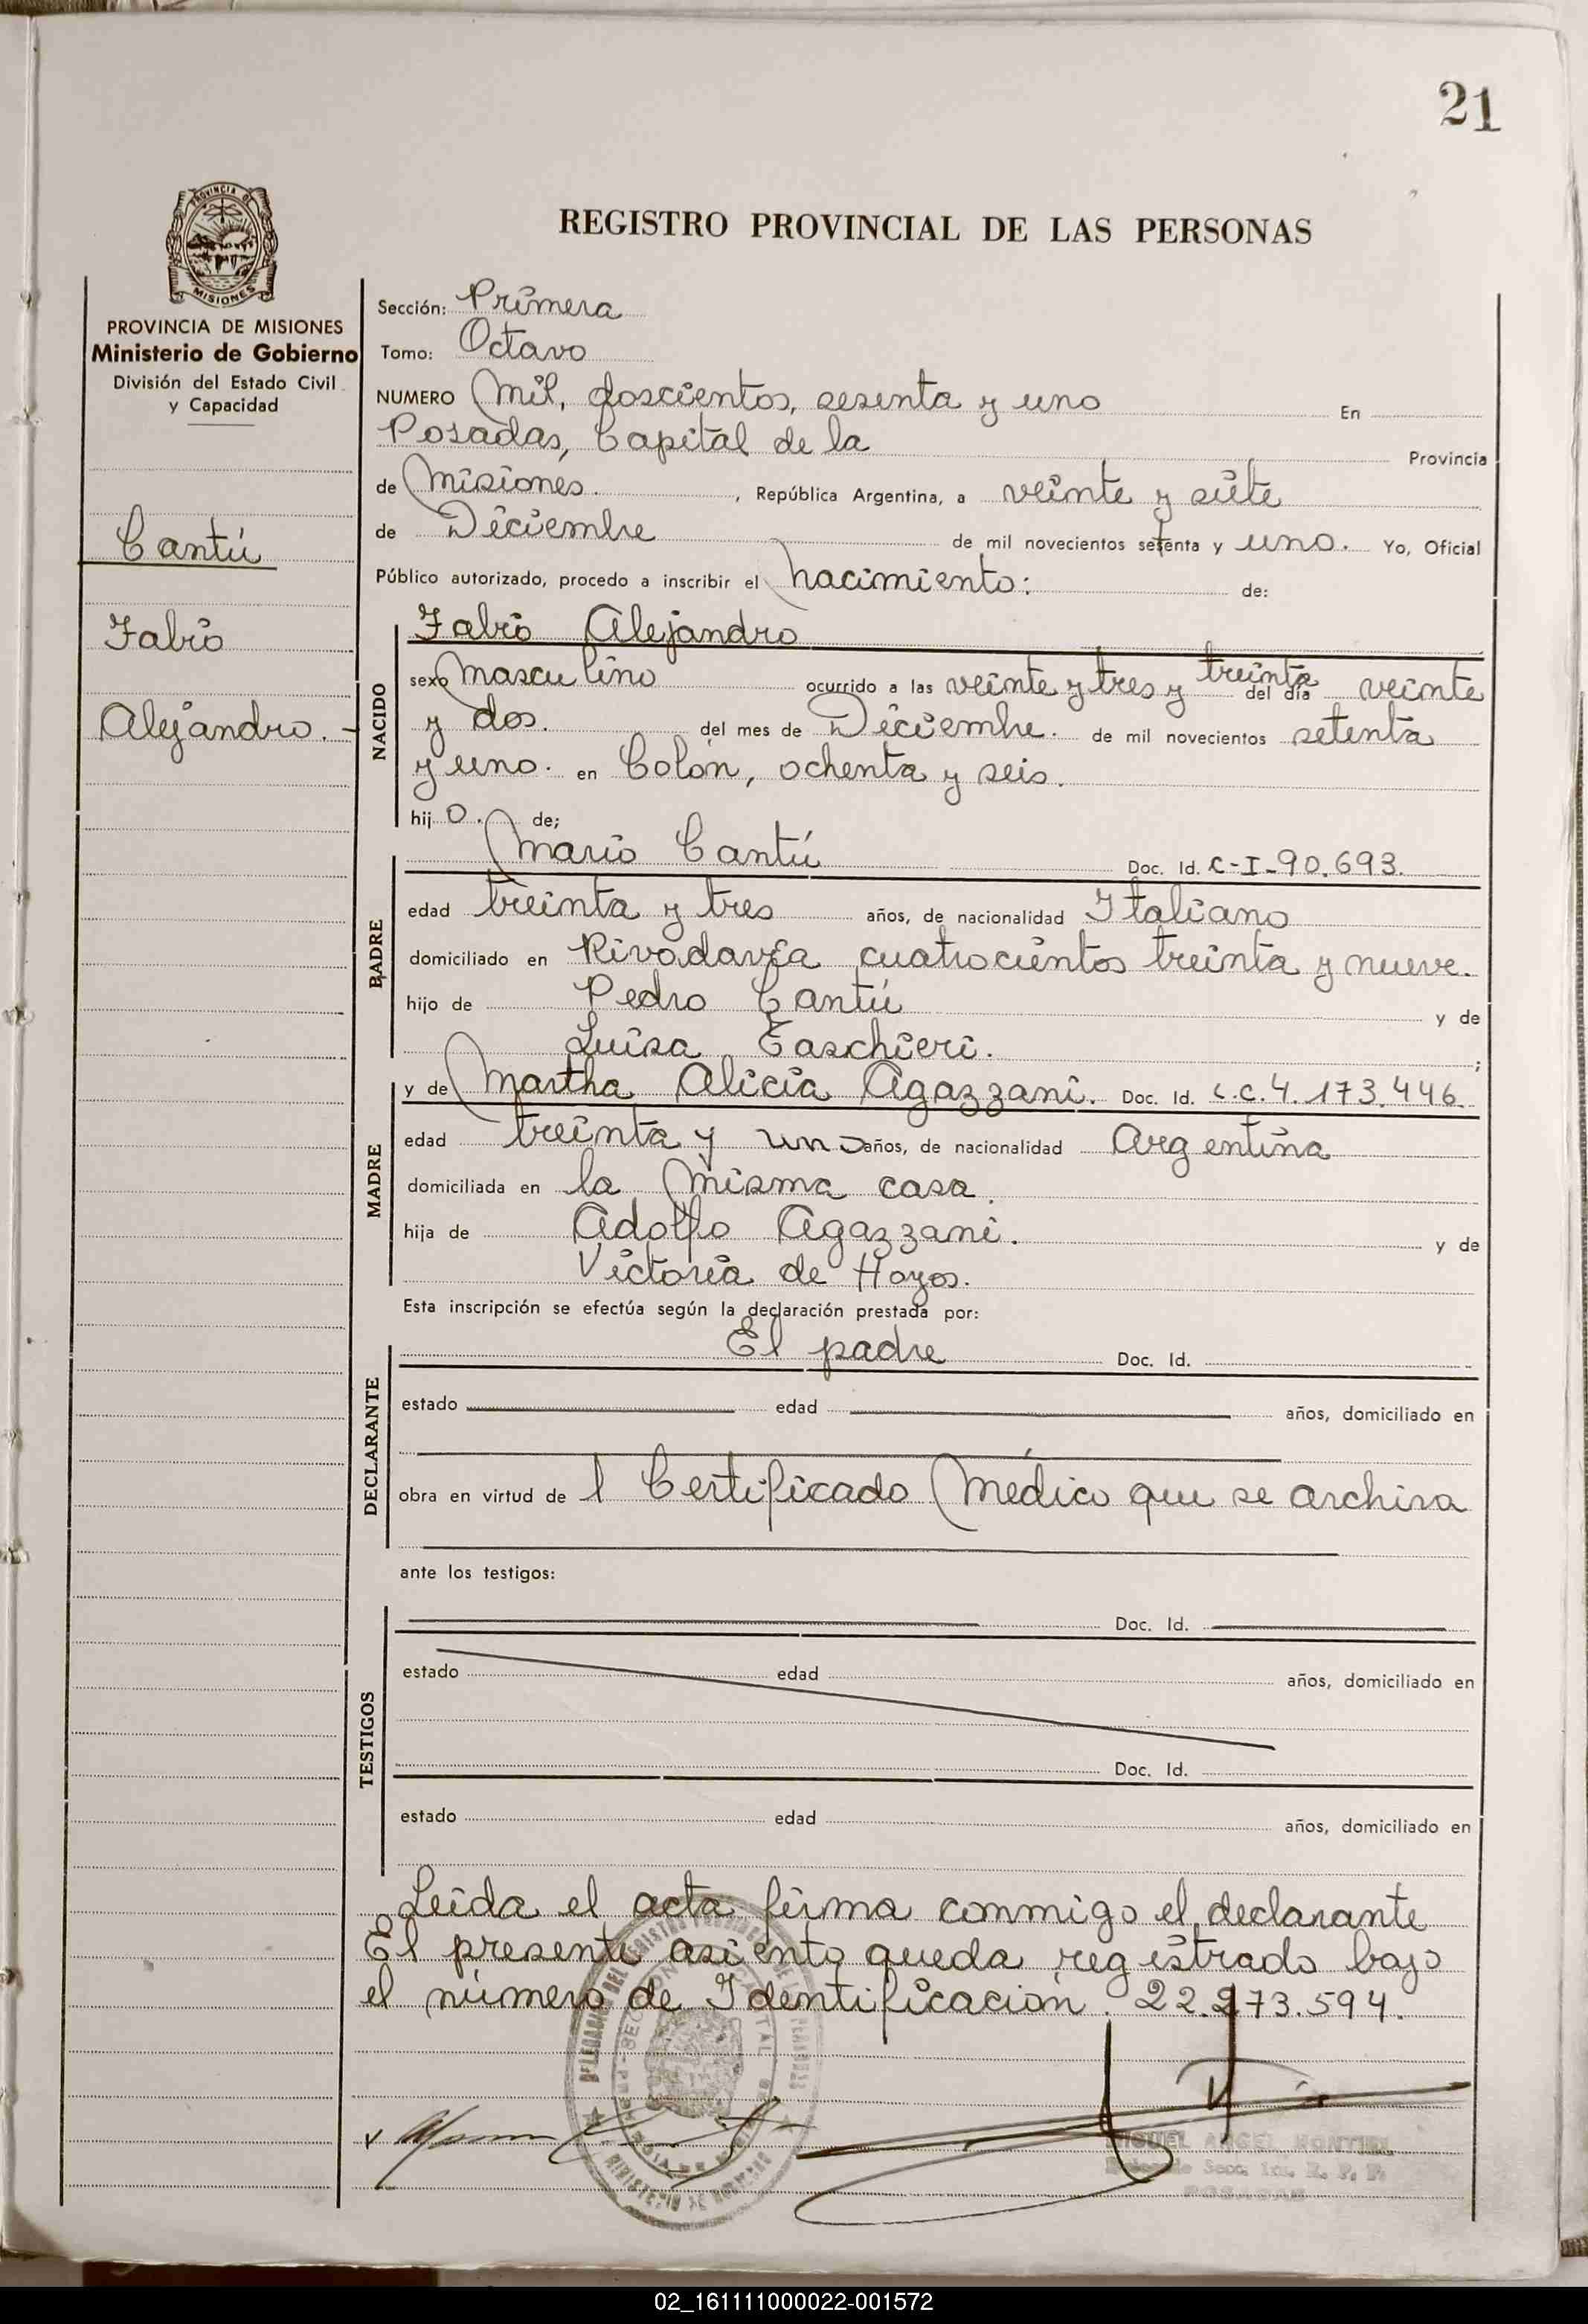 21
PROVINCIA DE
MISIONES
REGISTRO PROVINCIAL DE LAS PERSONAS
PROVINCIA DE MISIONES
Ministerio de Gobierno
División del Estado Civil
y Capacidad
Cantú
Fabio
Alejandro. -
Sección: Primera
Tomo: Octavo
NUMERO Mil, doscientos, sesenta y uno En
Posadas, Capital de la Provincia
de Misiones. , República Argentina, a veinte y siete
de Diciembre de mil novecientos setenta y uno. Yo, Oficial
Público autorizado, procedo a inscribir el nacimiento: de:
NACIDO
Fabio Alejandro
sexo Masculino ocurrido a las veinte y tres y treinta del día veinte
y dos. del mes de Diciembre. de mil novecientos setenta
y uno. en Colón, ochenta y seis.
hij o. de;
PADRE
Mario Cantú Doc. Id. C-I-90.693.
edad treinta y tres años, de nacionalidad Italiano
domiciliado en Rivadavia cuatrocientos treinta y nueve.
hijo de Pedro Cantú y de
Luisa Taschieri. ;
MADRE
y de Martha Alicia Agazzani. Doc. Id. L.C.4.173.446
edad treinta y un años, de nacionalidad Argentina
domiciliada en la misma casa.
hija de Adolfo Agazzani. y de
Victoria de Hoyos.
Esta inscripción se efectúa según la declaración prestada por:
DECLARANTE
El padre Doc. Id.
estado edad años, domiciliado en
obra en virtud de l Certificado Médico que se archiva
ante los testigos:
TESTIGOS
Doc. Id.
estado edad años, domiciliado en
Doc. Id.
estado edad años, domiciliado en
Leida el acta firma conmigo el declarante
El presente asiento queda registrado bajo
el número de Identificación. 22.273.594.
MIGUEL ANGEL MONTIEL
POSADAS
02_161111000022-001572